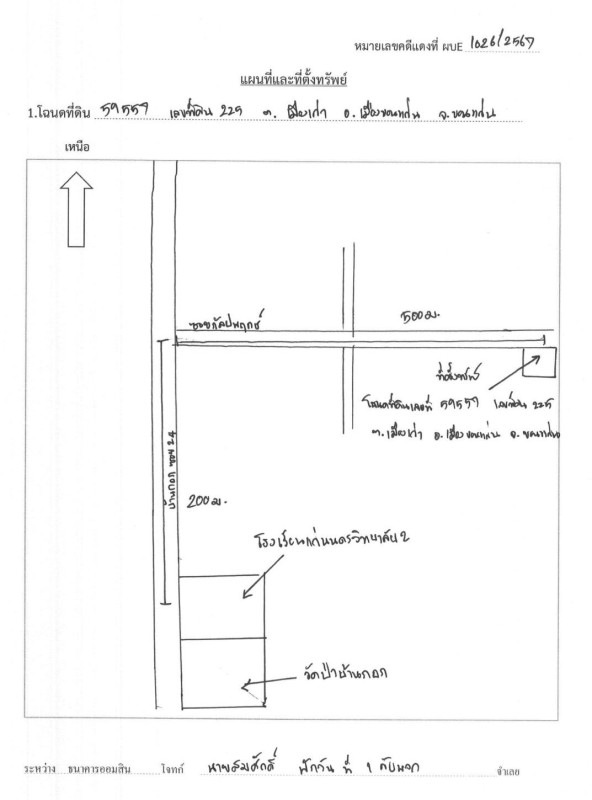 หมายเลขคดีแดงที่ ผบE 1026/2567
แผนที่และที่ตั้งทรัพย์
1.โฉนดที่ดิน 59557 เลขที่ดิน 225 ต. เมืองเก่า อ. เมืองขอนแก่น จ. ขอนแก่น
เหนือ
ซอยกัลปพฤกษ์
500 ม.
ที่ตั้งทรัพย์
โฉนดที่ดินเลขที่ 59557 เลขที่ดิน 225
ต. เมืองเก่า อ. เมืองขอนแก่น จ. ขอนแก่น
บ้านกอก ซอย 24
200 ม.
โรงเรียนแก่นนครวิทยาลัย 2
วัดป่าบ้านกอก
ระหว่าง ธนาคารออมสิน โจทก์ นายสมศักดิ์ ที่ 1 กับพวก จำเลย